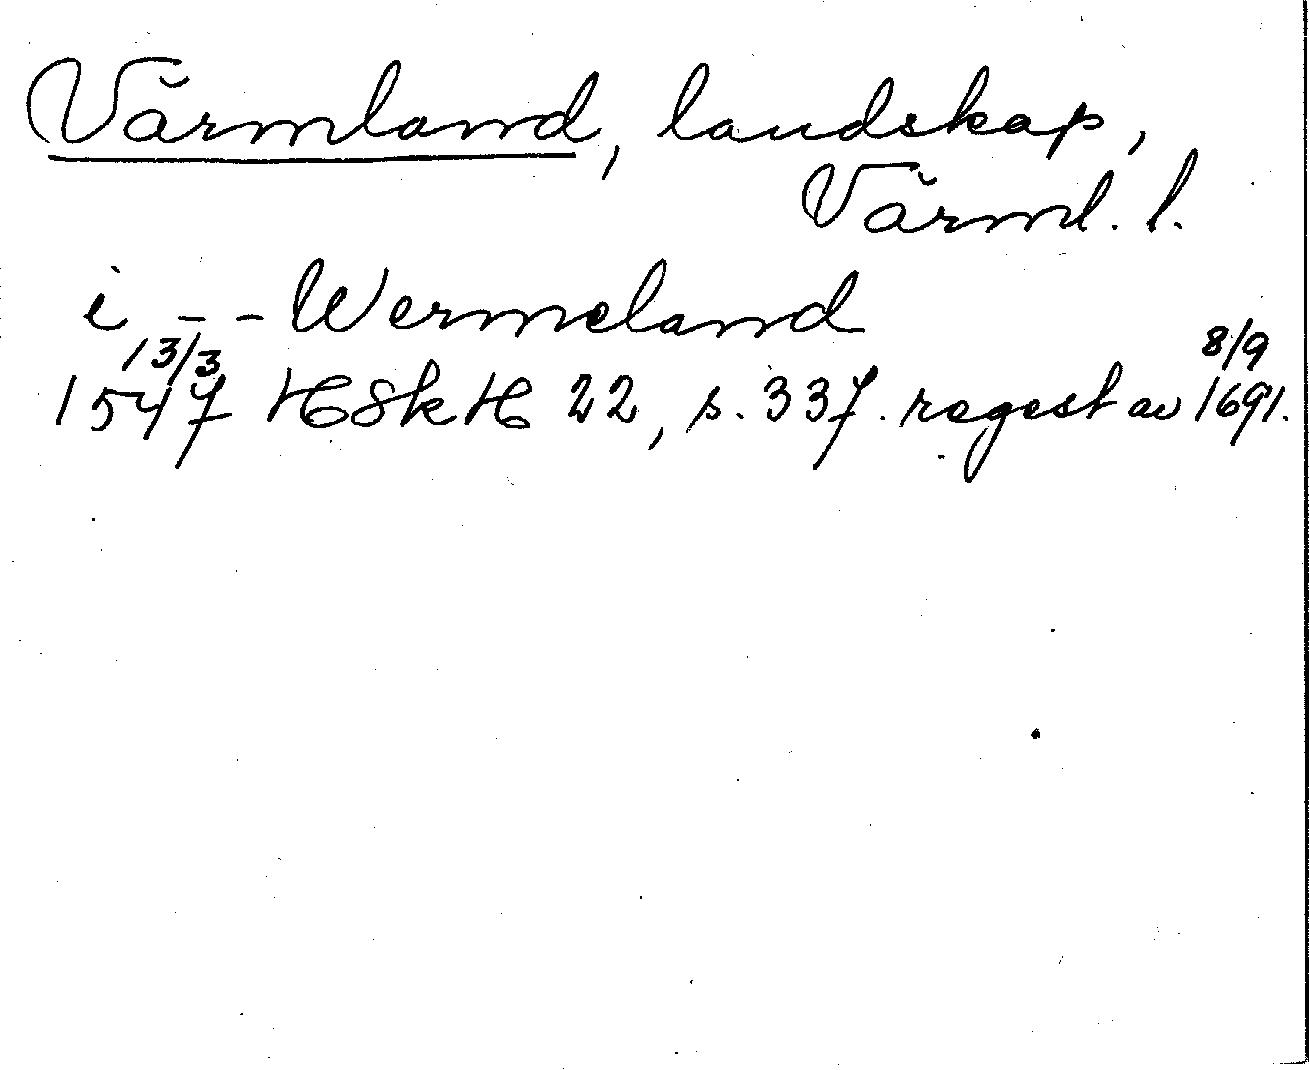 Värmland, landskap,
Värml. l.
i - - Wermeland
13/3 8/9
1547 HSkH 22, s. 337. regest av 1691.